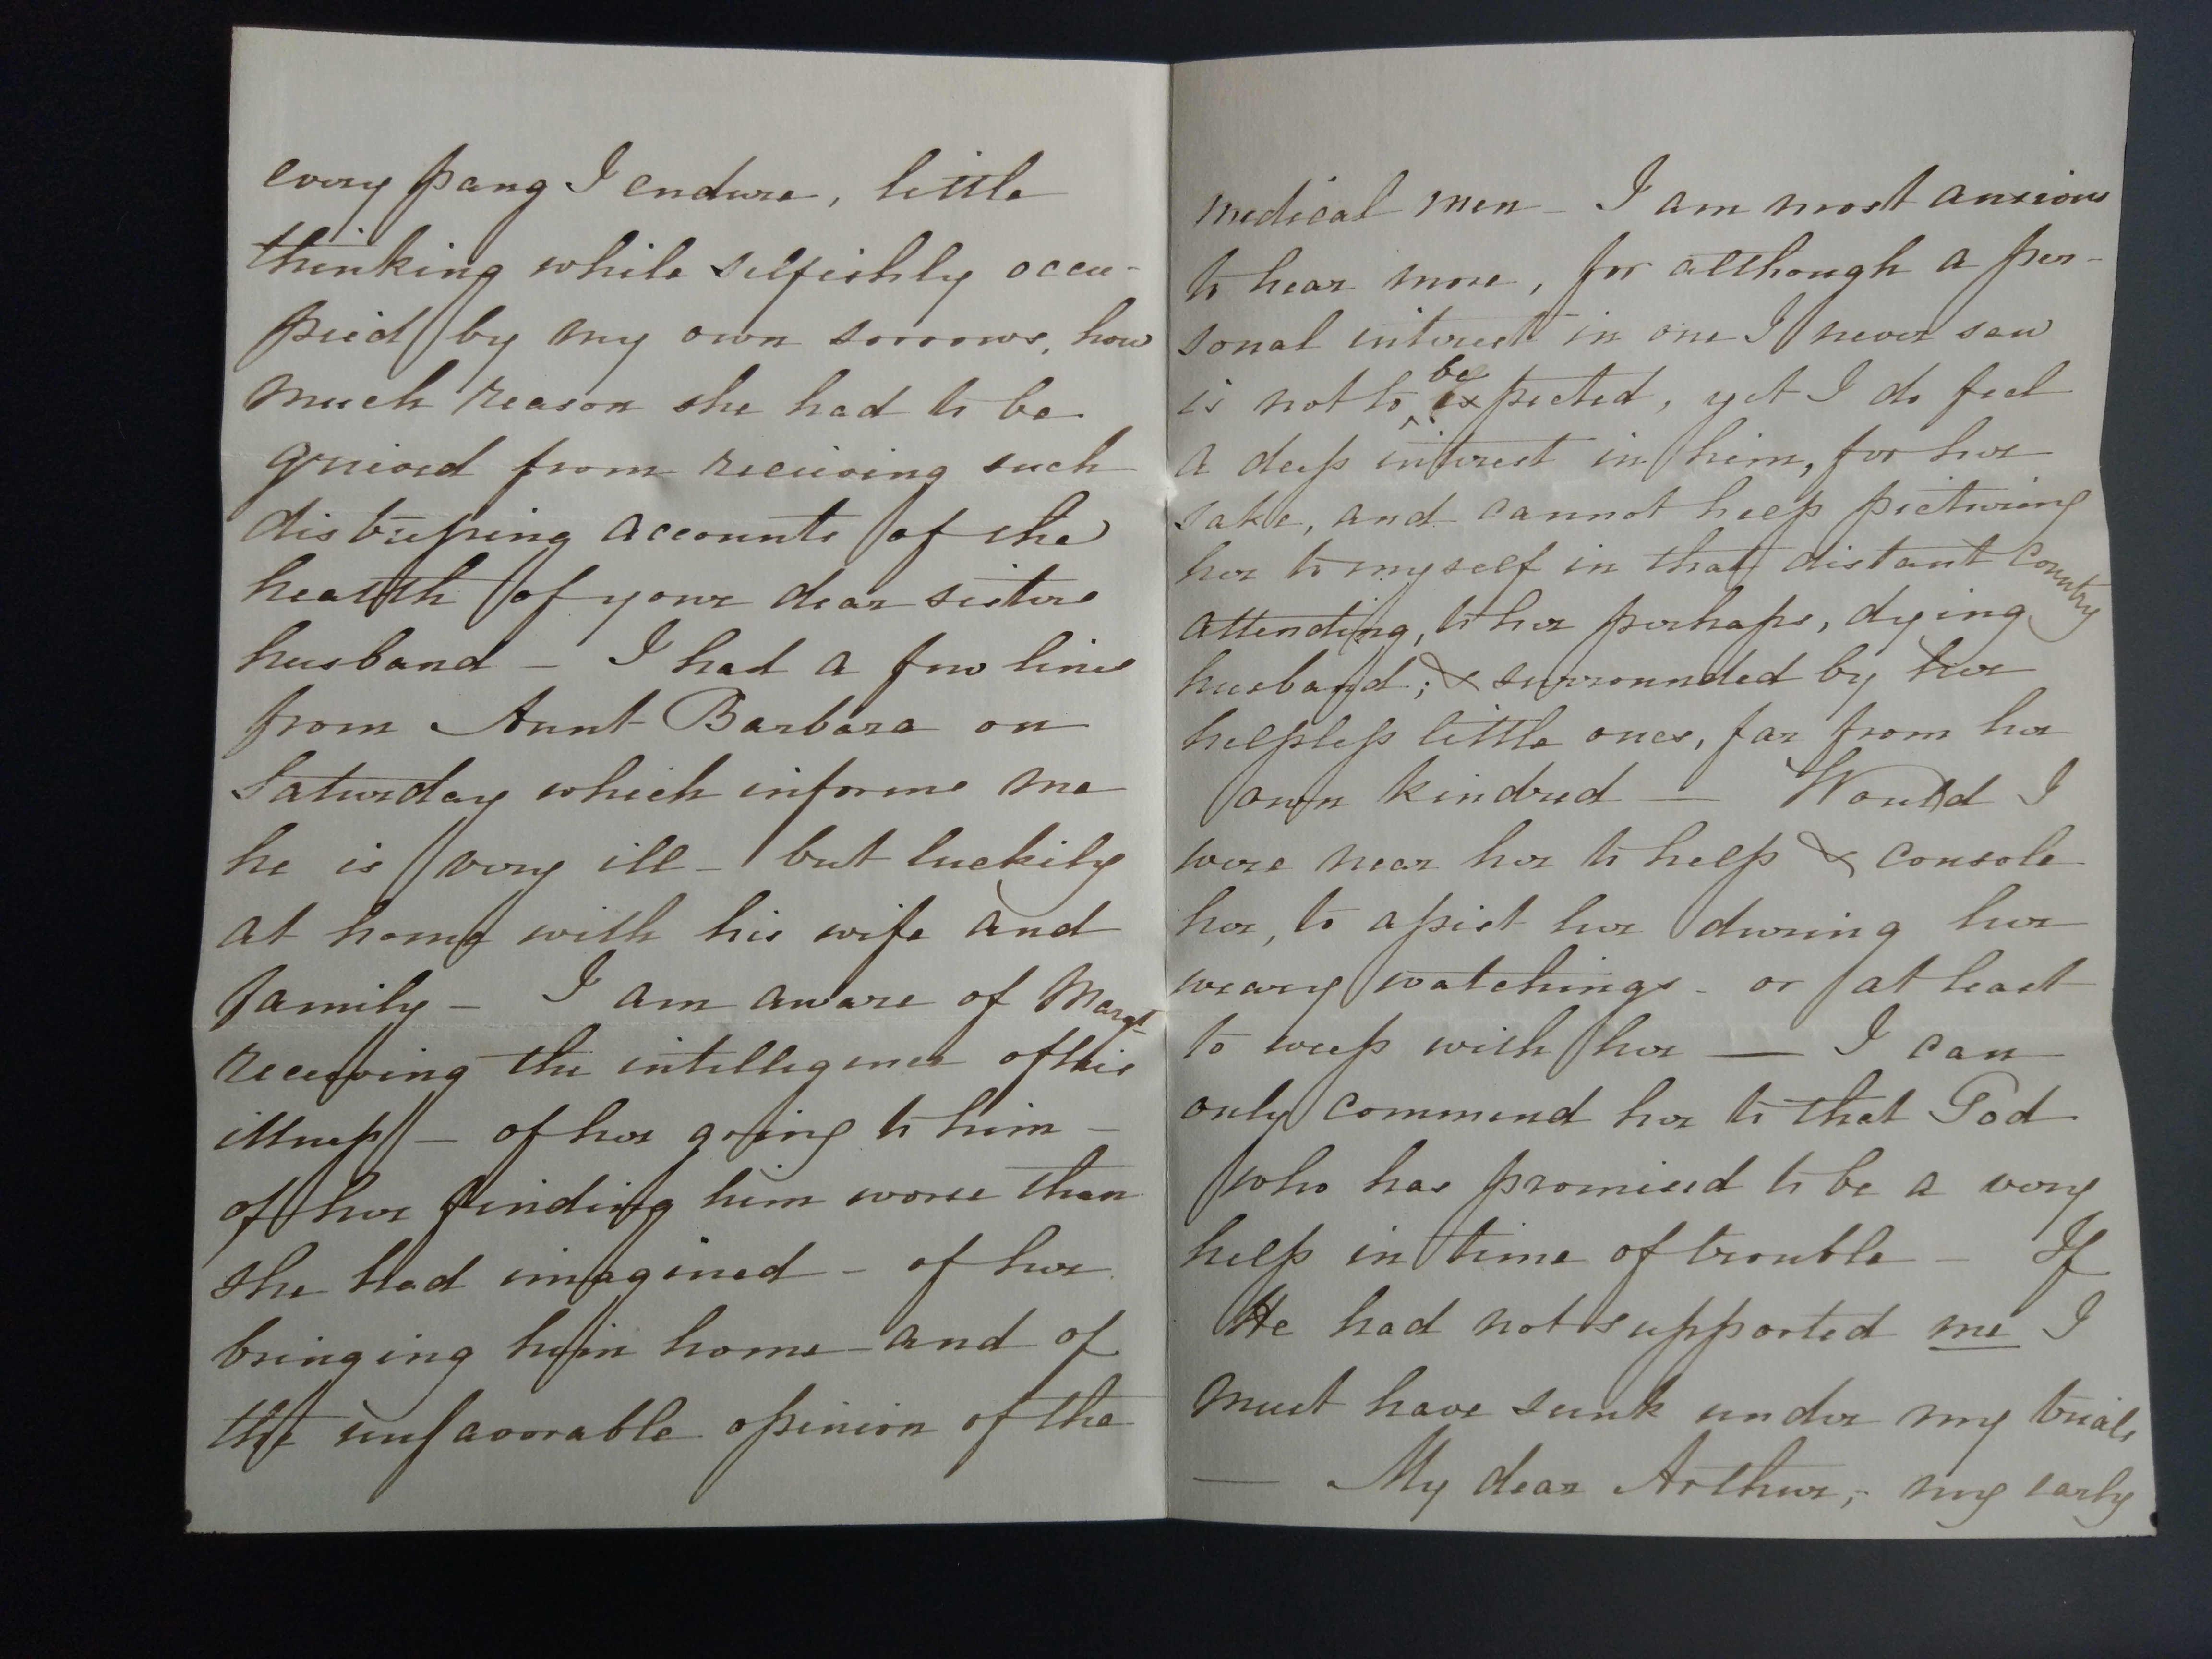 every pang I endure, little
thinking while selfishly occu-
pied by my own sorrows, how
much reason she had to be
grieved from receiving such
distressing accounts of the
health of your dear sisters
husband – I had a few lines
from Aunt Barbara on
Saturday which informs me
he is very ill – but luckily
at home with his wife and
family – I am aware of Margt
receiving the intelligence of his
illness – of her going to him –
of her finding him worse than
she had imagined – of her
bringing him home – and of
the unfavorable opinion of the
medical men – I am most anxious
to hear more, for although a per-
sonal interest in one I never saw
is not to be expected, yet I do feel
a deep interest in him, for her
sake, and cannot help picturing
her to myself in that distant country
attending, to her perhaps, dying
husband; & surrounded by her
helpless little ones, far from her
own kindred — Would I
were near her to help & console
her, to assist her during her
weary watchings – or at least
to weep with her — I can
only commend her to that God
who has promised to be a very
help in time of trouble – If
He had not supported me I
must have sunk under my trials
— My dear Arthur, – my early